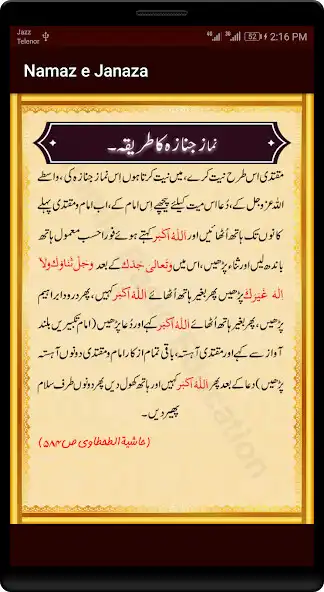 Jazz
Telenor
4G 3G 52 2:16 PM
Namaz e Janaza
نمازِ جنازہ کا طریقہ۔
مقتدی اس طرح نیت کرے، میں نیت کرتا ہوں اِس نماز جنازہ کی، واسطے
اللہ عزوجل کے، دُعا اس میت کیلئے پیچھے اِس امام کے، اب امام و مقتدی پہلے
کانوں تک ہاتھ اُٹھائیں اور اَللّٰهُ اَكْبَر کہتے ہوئے فوراً حسب معمول ہاتھ
باندھ لیں اور ثناء پڑھیں، اس میں وَتَعَالٰی جَدُّكَ کے بعد وَجَلَّ ثَنَاؤُكَ وَلَا
اِلٰهَ غَيْرُكَ پڑھیں پھر بغیر ہاتھ اُٹھائے اَللّٰهُ اَكْبَر کہیں، پھر درود ابراہیم
پڑھیں، پھر بغیر ہاتھ اُٹھائے اَللّٰهُ اَكْبَر کہے اور دُعا پڑھیں (امام تکبیریں بلند
آواز سے کہے اور مقتدی آہستہ، باقی تمام اذکار امام و مقتدی دونوں آہستہ
پڑھیں) دعا کے بعد پھر اَللّٰهُ اَكْبَر کہیں اور ہاتھ کھول دیں پھر دونوں طرف سلام
پھیر دیں۔
(حاشیة الطحطاوی ص ۵۸۴)